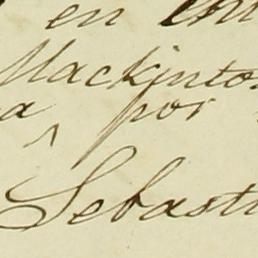 en
Mackinto
a por
Sebasti